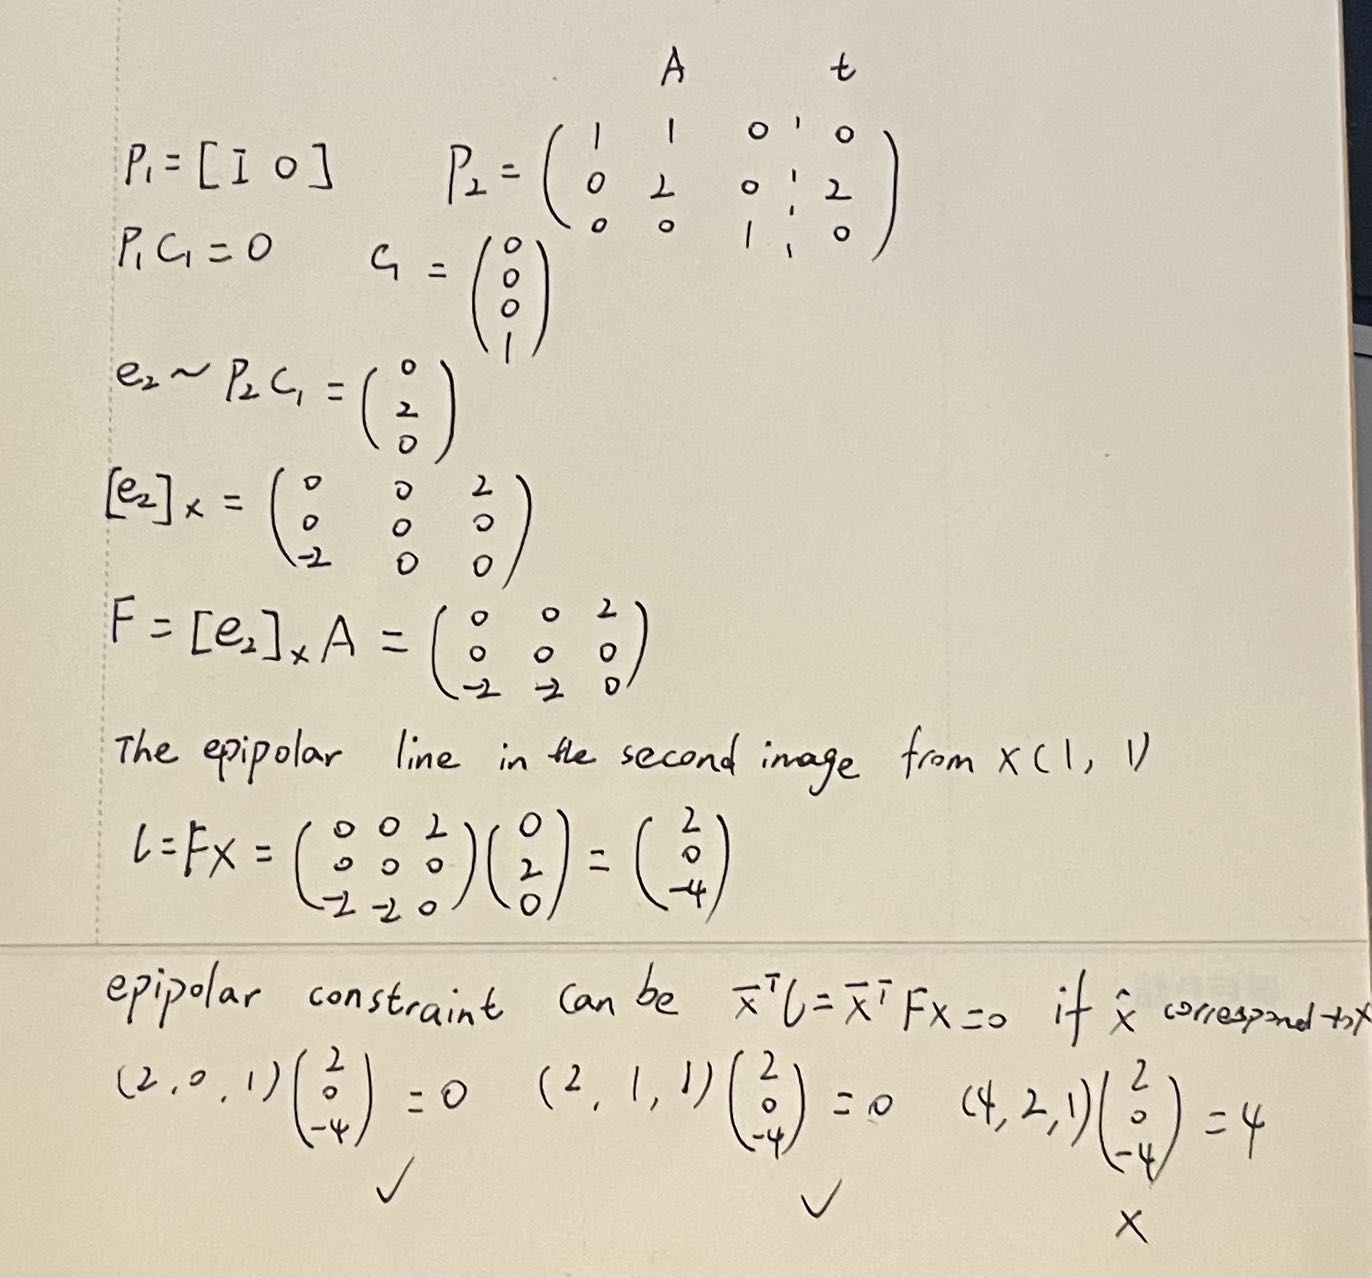 A t
P₁ = [I 0] P₂ = (1 1 0 ¦ 0; 0 2 0 ¦ 2; 0 0 1 ¦ 0)
P₁C₁ = 0 C₁ = (0; 0; 0; 1)
e₂ ~ P₂C₁ = (0; 2; 0)
[e₂]ₓ = (0 0 2; 0 0 0; -2 0 0)
F = [e₂]ₓ A = (0 0 2; 0 0 0; -2 -2 0)
The epipolar line in the second image from x(1, 1)
l = Fx = (0 0 2; 0 0 0; -2 -2 0)(0; 2; 0) = (2; 0; -4)
epipolar constraint can be x̄ᵀl = x̄ᵀFx = 0 if x̂ correspond to x
(2, 0, 1)(2; 0; -4) = 0 (2, 1, 1)(2; 0; -4) = 0 (4, 2, 1)(2; 0; -4) = 4
✓ ✓ x